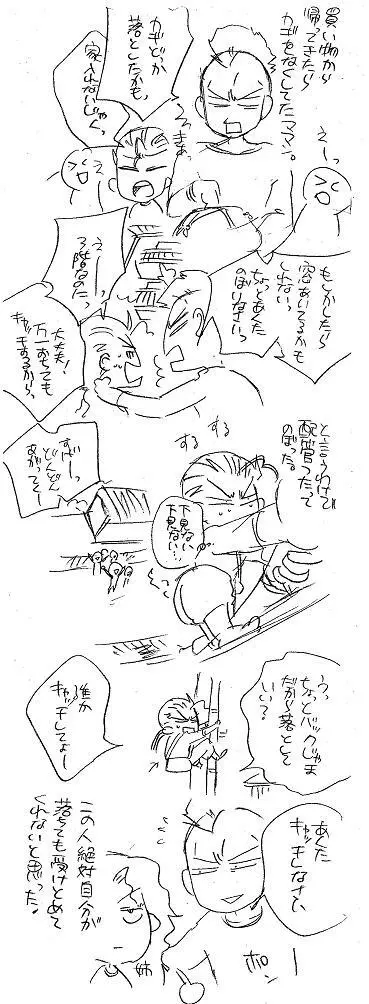 買い物から
帰ってきたら
カギをなくしてたママン。
カギどっか
落としたかも、
家入れないじゃん、
えーっ
もしかしたら
窓あいてるかも
しれない
ちょっとあくた
のぼりなさいっ
えーっ
3階なのだっ
大丈夫!
万一おちても
キャッチするから、
と言うわけで
配管つたって
のぼった。
する
する
すげーっ
どんどん
あがってくー
下見ない、
下見ない…!
うっ
ちょっとバックじゃま
だから落として
いい?
誰か
キャッチしてよー
あくた
キャッチしなさい、
ポーン
姉
この人絶対自分が
落ちても受けとめて
くれないと思った。